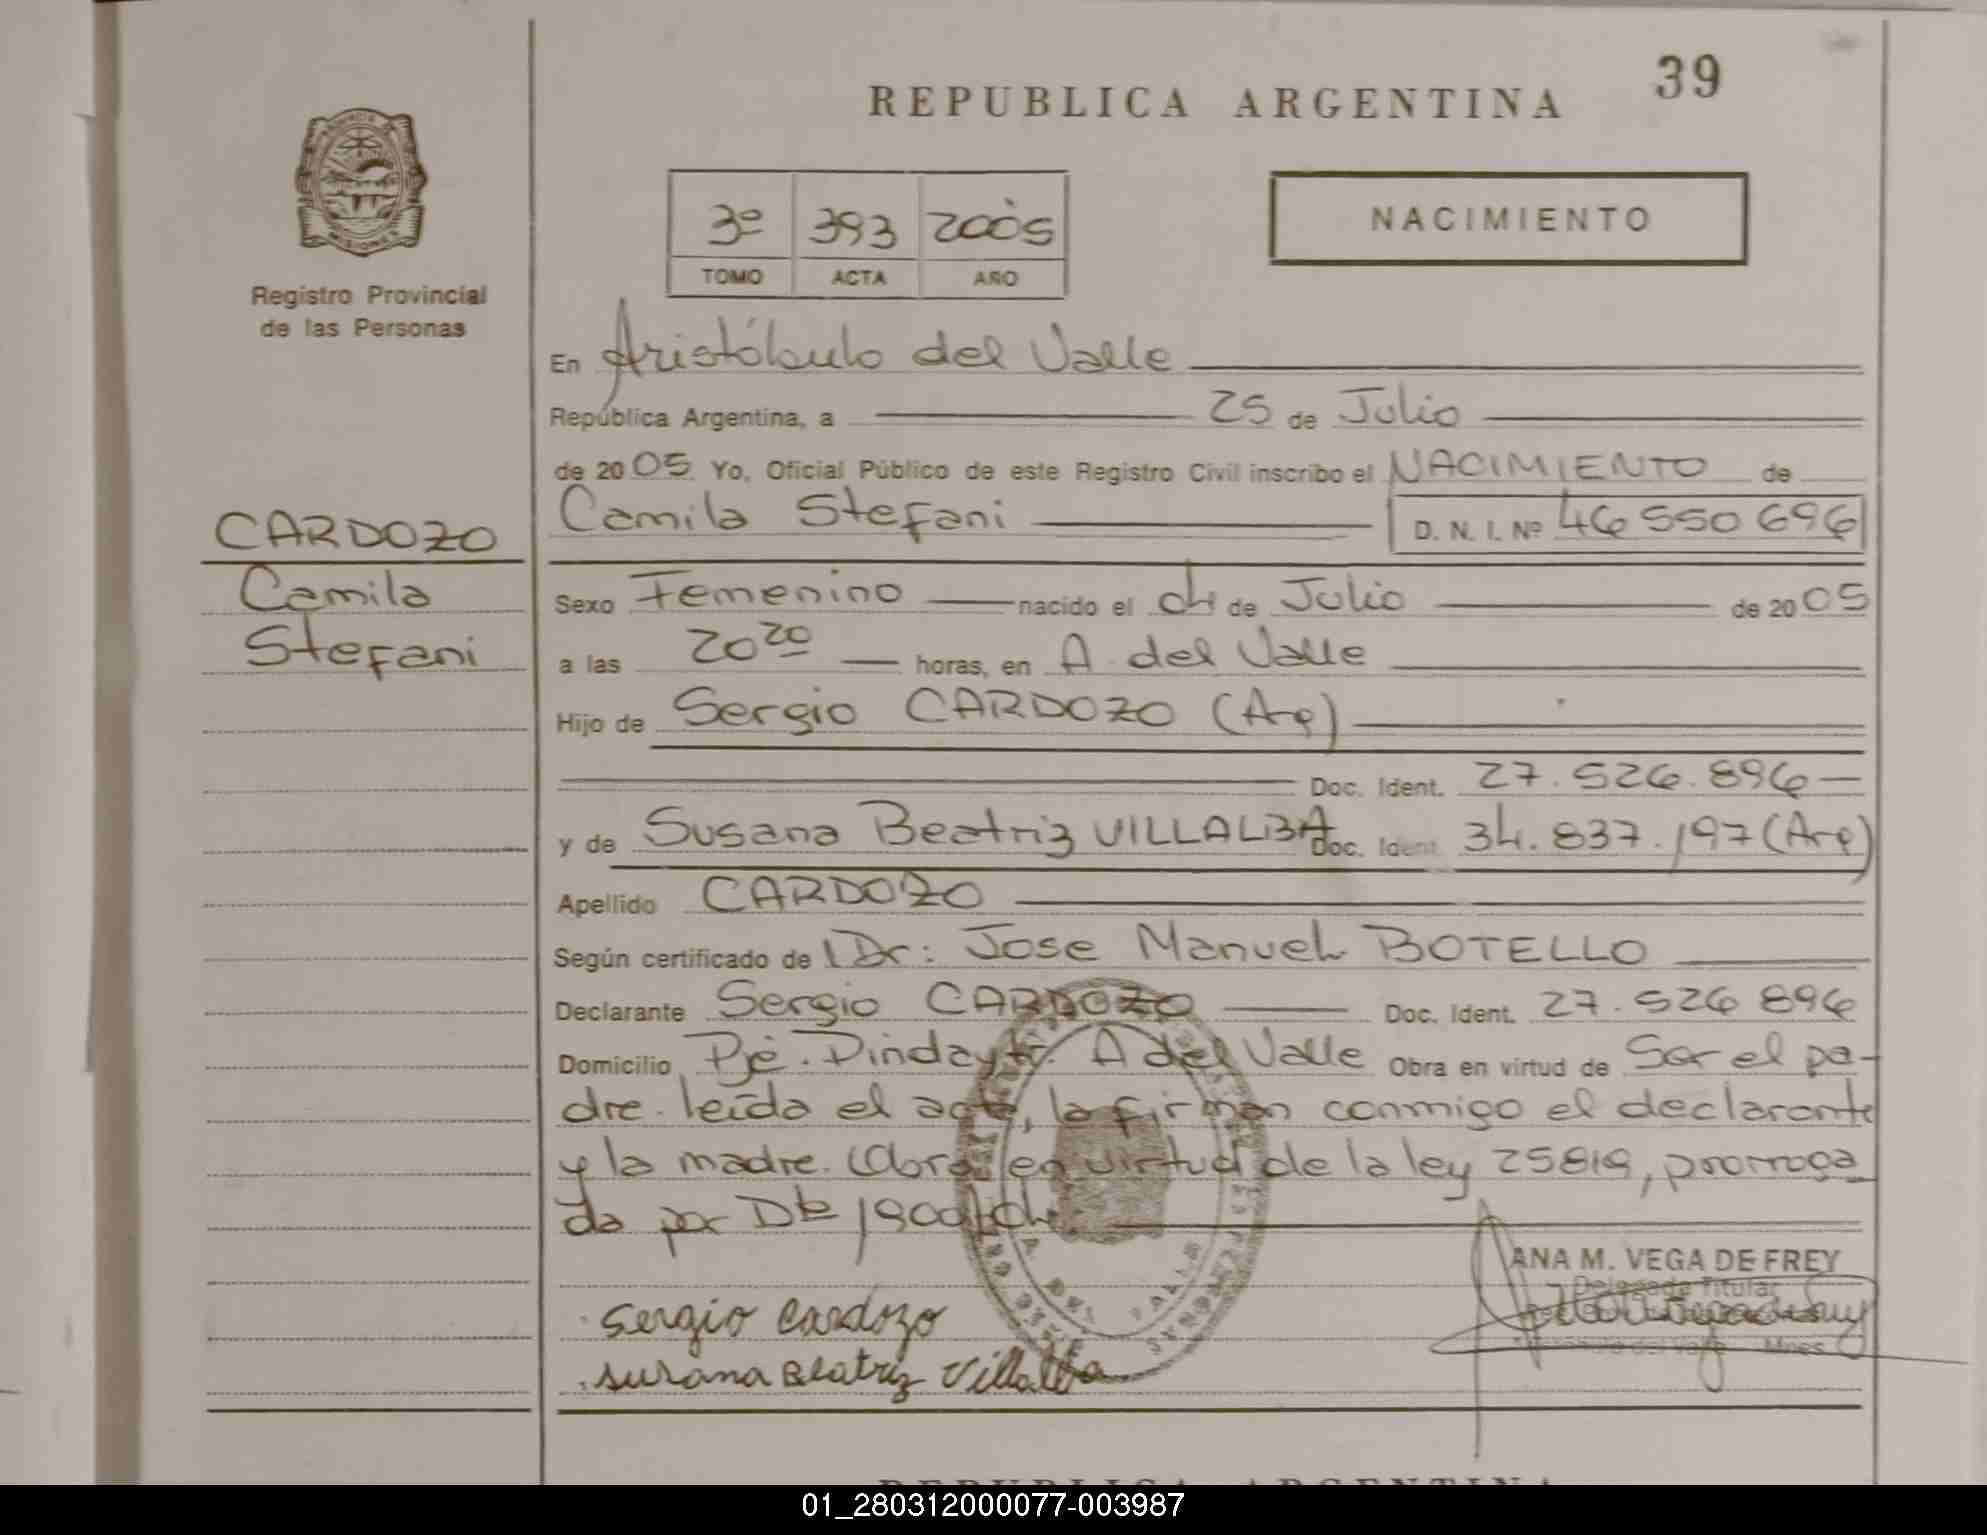 39
REPUBLICA ARGENTINA
3º 393 2005
TOMO ACTA AÑO
NACIMIENTO
MISIONES
Registro Provincial
de las Personas
CARDOZO
Camila
Stefani
En Aristóbulo del Valle
República Argentina, a 25 de Julio
de 2005 Yo, Oficial Público de este Registro Civil inscribo el NACIMIENTO de
Camila Stefani D. N. I. Nº 46 550 696
Sexo Femenino nacido el 04 de Julio de 2005
a las 20 20 horas, en A. del Valle
Hijo de Sergio CARDOZO (Arg)
Doc. Ident. 27.526.896
y de Susana Beatriz VILLALBA Doc. Ident. 34.837.197 (Arg)
Apellido CARDOZO
Según certificado de Dr: Jose Manuel BOTELLO
Declarante Sergio CARDOZO Doc. Ident. 27.526 896
Domicilio Pje. Pindayty. A del Valle Obra en virtud de Ser el pa-
dre. leída el acta, la firman conmigo el declarante
y la madre. Obra en virtud de la ley 25819, prorroga
da por Dto 1900/04.
ANA M. VEGA DE FREY
Delegada Titular
Aristóbulo del Valle Mnes
Sergio Cardozo
Susana Beatriz Villalba
REPUBLICA ARGENTINA
01_280312000077-003987